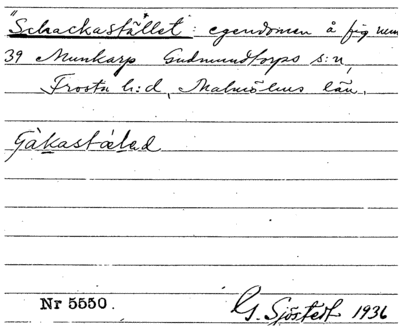 "Schackastället: egendomen å fig num
39 Munkarp Gudmundtorps s:n,
Frosta h:d, Malmöhus län.
Gåkastäled
Nr 5550.
G. Sjöstedt 1936